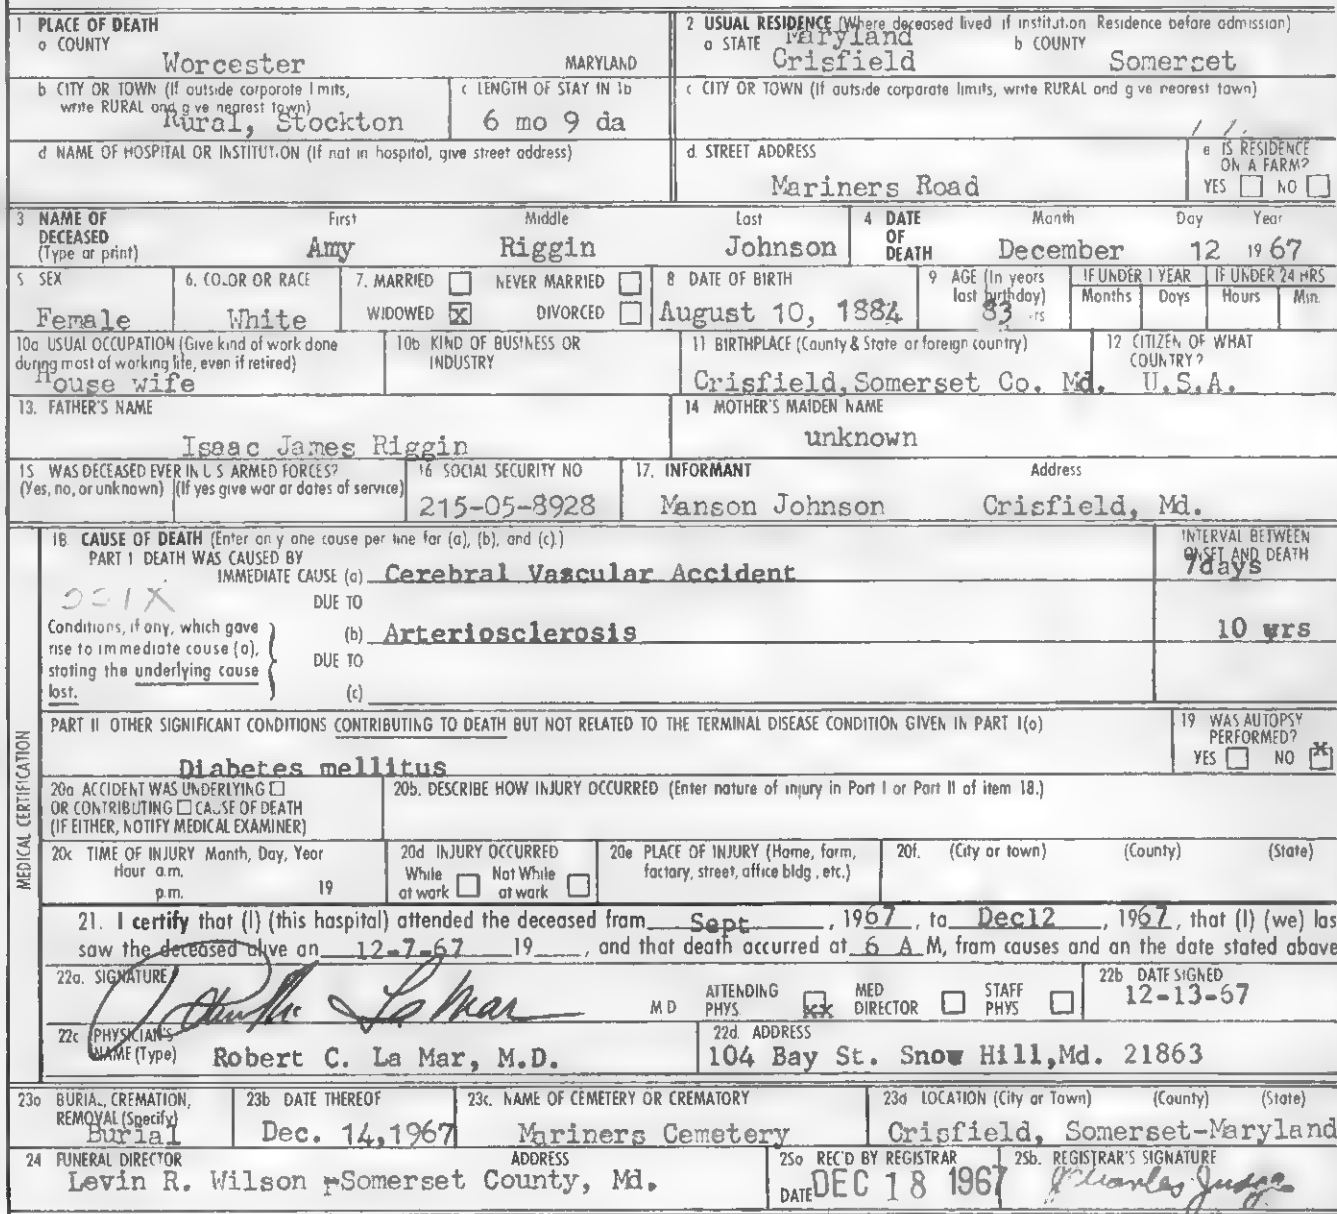 1 PLACE OF DEATH
a COUNTY
Worcester MARYLAND
2 USUAL RESIDENCE (Where deceased lived if institution Residence before admission)
a STATE Maryland b COUNTY
Crisfield Somerset
b CITY OR TOWN (If outside corporate limits, write RURAL and give nearest town)
Rural, Stockton
c LENGTH OF STAY IN 1b
6 mo 9 da
c CITY OR TOWN (If outside corporate limits, write RURAL and give nearest town)
d NAME OF HOSPITAL OR INSTITUTION (If not in hospital, give street address)
d. STREET ADDRESS
Mariners Road
e IS RESIDENCE ON A FARM?
YES NO
3 NAME OF DECEASED (Type or print)
First Middle Last
Amy Riggin Johnson
4 DATE OF DEATH
Month Day Year
December 12 1967
5 SEX
Female
6. COLOR OR RACE
White
7. MARRIED NEVER MARRIED
WIDOWED X DIVORCED
8 DATE OF BIRTH
August 10, 1884
9 AGE (In years last birthday)
83 yrs
IF UNDER 1 YEAR
Months Days
IF UNDER 24 HRS
Hours Min.
10a USUAL OCCUPATION (Give kind of work done during most of working life, even if retired)
House wife
10b KIND OF BUSINESS OR INDUSTRY
11 BIRTHPLACE (County & State or foreign country)
Crisfield, Somerset Co. Md.
12 CITIZEN OF WHAT COUNTRY?
U.S.A.
13. FATHER'S NAME
Isaac James Riggin
14 MOTHER'S MAIDEN NAME
unknown
15 WAS DECEASED EVER IN U S ARMED FORCES?
(Yes, no, or unknown) (If yes give war or dates of service)
16 SOCIAL SECURITY NO
215-05-8928
17. INFORMANT Address
Manson Johnson Crisfield, Md.
MEDICAL CERTIFICATION
18 CAUSE OF DEATH (Enter only one cause per line for (a), (b), and (c).)
PART 1 DEATH WAS CAUSED BY
IMMEDIATE CAUSE (a) Cerebral Vascular Accident
INTERVAL BETWEEN ONSET AND DEATH
7days
DUE TO
Conditions, if any, which gave rise to immediate cause (a), stating the underlying cause last.
(b) Arteriosclerosis 10 yrs
DUE TO
(c)
PART II OTHER SIGNIFICANT CONDITIONS CONTRIBUTING TO DEATH BUT NOT RELATED TO THE TERMINAL DISEASE CONDITION GIVEN IN PART I(a)
Diabetes mellitus
19 WAS AUTOPSY PERFORMED?
YES NO X
20a ACCIDENT WAS UNDERLYING
OR CONTRIBUTING CAUSE OF DEATH
(IF EITHER, NOTIFY MEDICAL EXAMINER)
20b. DESCRIBE HOW INJURY OCCURRED (Enter nature of injury in Part I or Part II of item 18.)
20c TIME OF INJURY Month, Day, Year
Hour a.m.
p.m. 19
20d INJURY OCCURRED
While at work Not While at work
20e PLACE OF INJURY (Home, farm, factory, street, office bldg, etc.)
20f. (City or town) (County) (State)
21. I certify that (I) (this hospital) attended the deceased from Sept, 1967, to Dec12, 1967, that (I) (we) las
saw the deceased alive on 12-7-67 19 , and that death occurred at 6 A M, from causes and on the date stated above
22a. SIGNATURE
La Mar
M D ATTENDING PHYS xx MED DIRECTOR STAFF PHYS
22b DATE SIGNED
12-13-67
22c PHYSICIAN'S NAME (Type) Robert C. La Mar, M.D.
22d. ADDRESS
104 Bay St. Snow Hill,Md. 21863
23a BURIAL, CREMATION, REMOVAL (Specify)
Burial
23b DATE THEREOF
Dec. 14,1967
23c. NAME OF CEMETERY OR CREMATORY
Mariners Cemetery
23d LOCATION (City or Town) (County) (State)
Crisfield, Somerset-Maryland
24 FUNERAL DIRECTOR ADDRESS
Levin R. Wilson Somerset County, Md.
25a REC'D BY REGISTRAR
DATE DEC 18 1967
25b. REGISTRAR'S SIGNATURE
Charles Judge